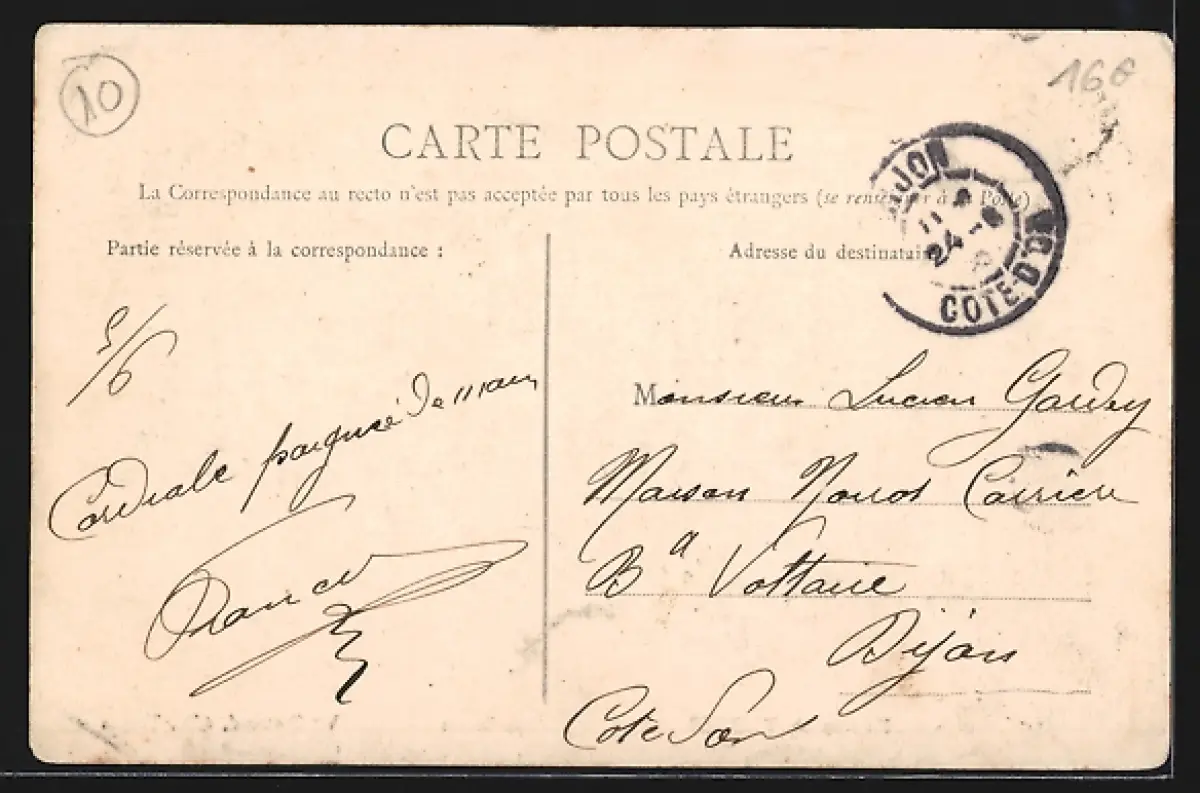 10
16€
CARTE POSTALE
La Correspondance au recto n'est pas acceptée par tous les pays étrangers (se renseigner à la Poste)
Partie réservée à la correspondance :
Adresse du destinataire
DIJON
24
COTE-D'OR
5/6
Cordiale poignée de main
Monsieur Lucien Gardey
Maison Carrière
Bd Voltaire
Dijon
Cote d'Or